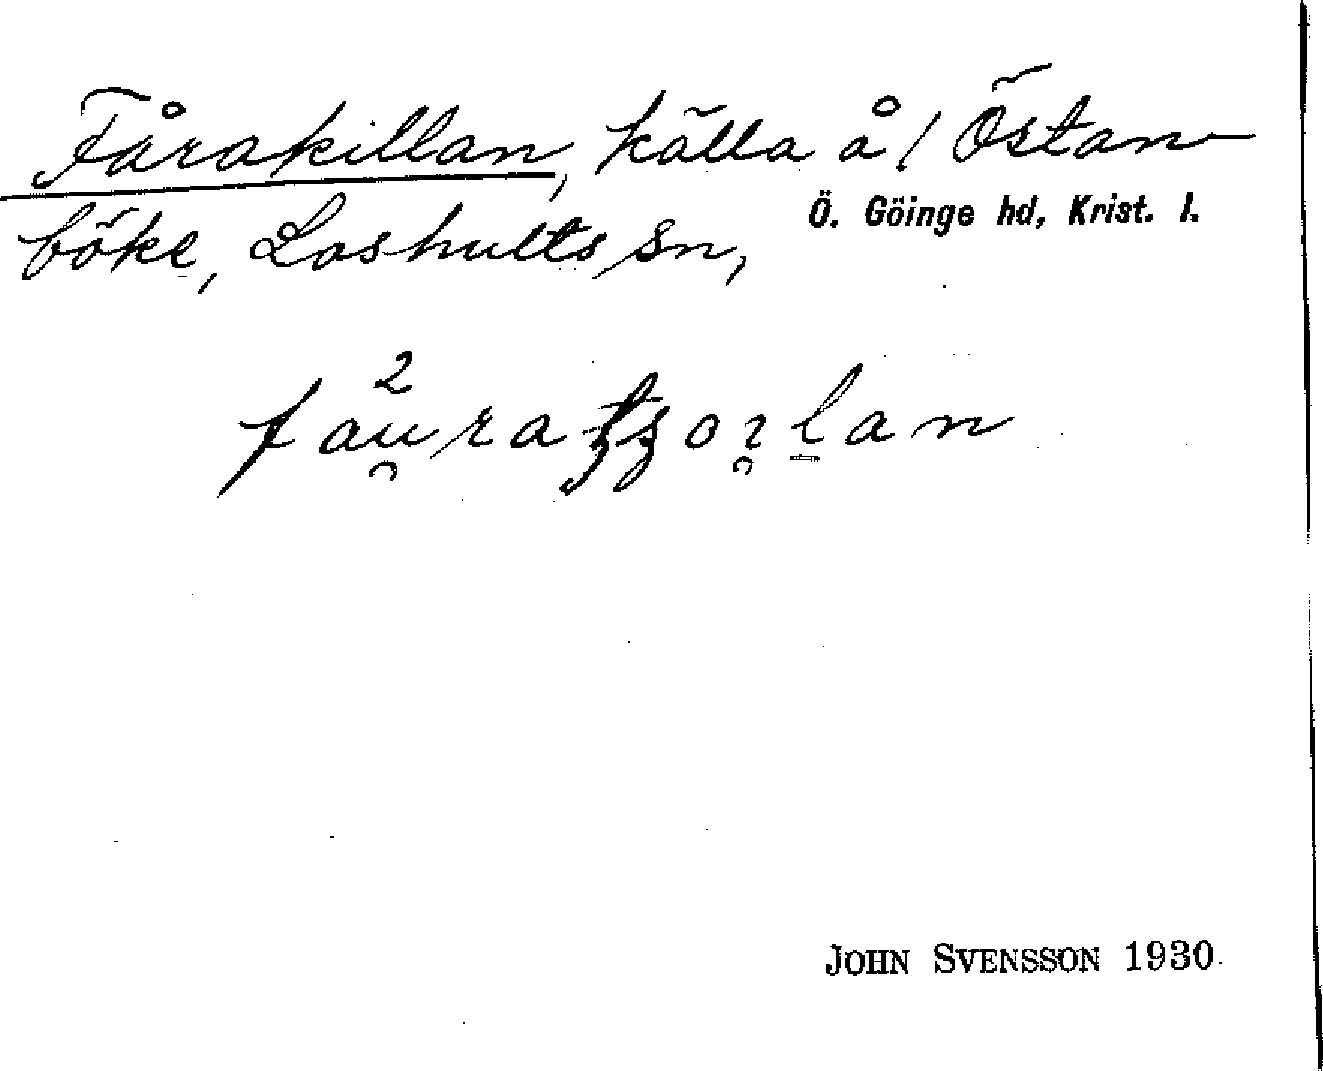 Fårakillan, källa å / Östan-
böke, Loshults sn, Ö. Göinge hd, Krist. l.
JOHN SVENSSON 1930